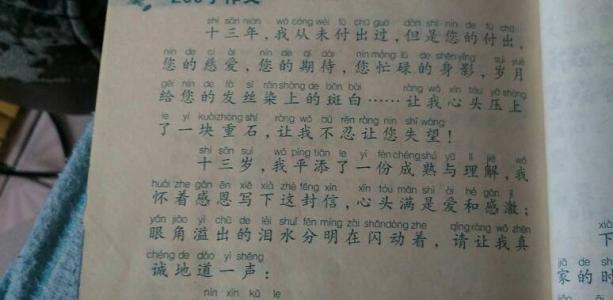 shí sān nián wǒ cóng wèi fù chū guò dàn shì nín de fù chū
十三年，我从未付出过，但是您的付出，
nín de cí ài nín de qī dài nín máng lù de shēn yǐng suì yuè
您的慈爱，您的期待，您忙碌的身影，岁月
gěi nín de fà sī rǎn shàng de bān bái ràng wǒ xīn tóu yā shàng
给您的发丝染上的斑白……让我心头压上
le yí kuài zhòng shí ràng wǒ bù rěn ràng nín shī wàng
了一块重石，让我不忍让您失望！
shí sān suì wǒ píng tiān le yí fèn chéng shú yǔ lǐ jiě wǒ
十三岁，我平添了一份成熟与理解，我
huái zhe gǎn ēn xiě xià zhè fēng xìn xīn tóu mǎn shì ài hé gǎn jī
怀着感恩写下这封信，心头满是爱和感激；
yǎn jiǎo yì chū de lèi shuǐ fēn míng zài shǎn dòng zhe qǐng ràng wǒ zhēn
眼角溢出的泪水分明在闪动着，请让我真
chéng de dào yì shēng
诚地道一声：
nín xīn kǔ le
下
jiā de
家的时